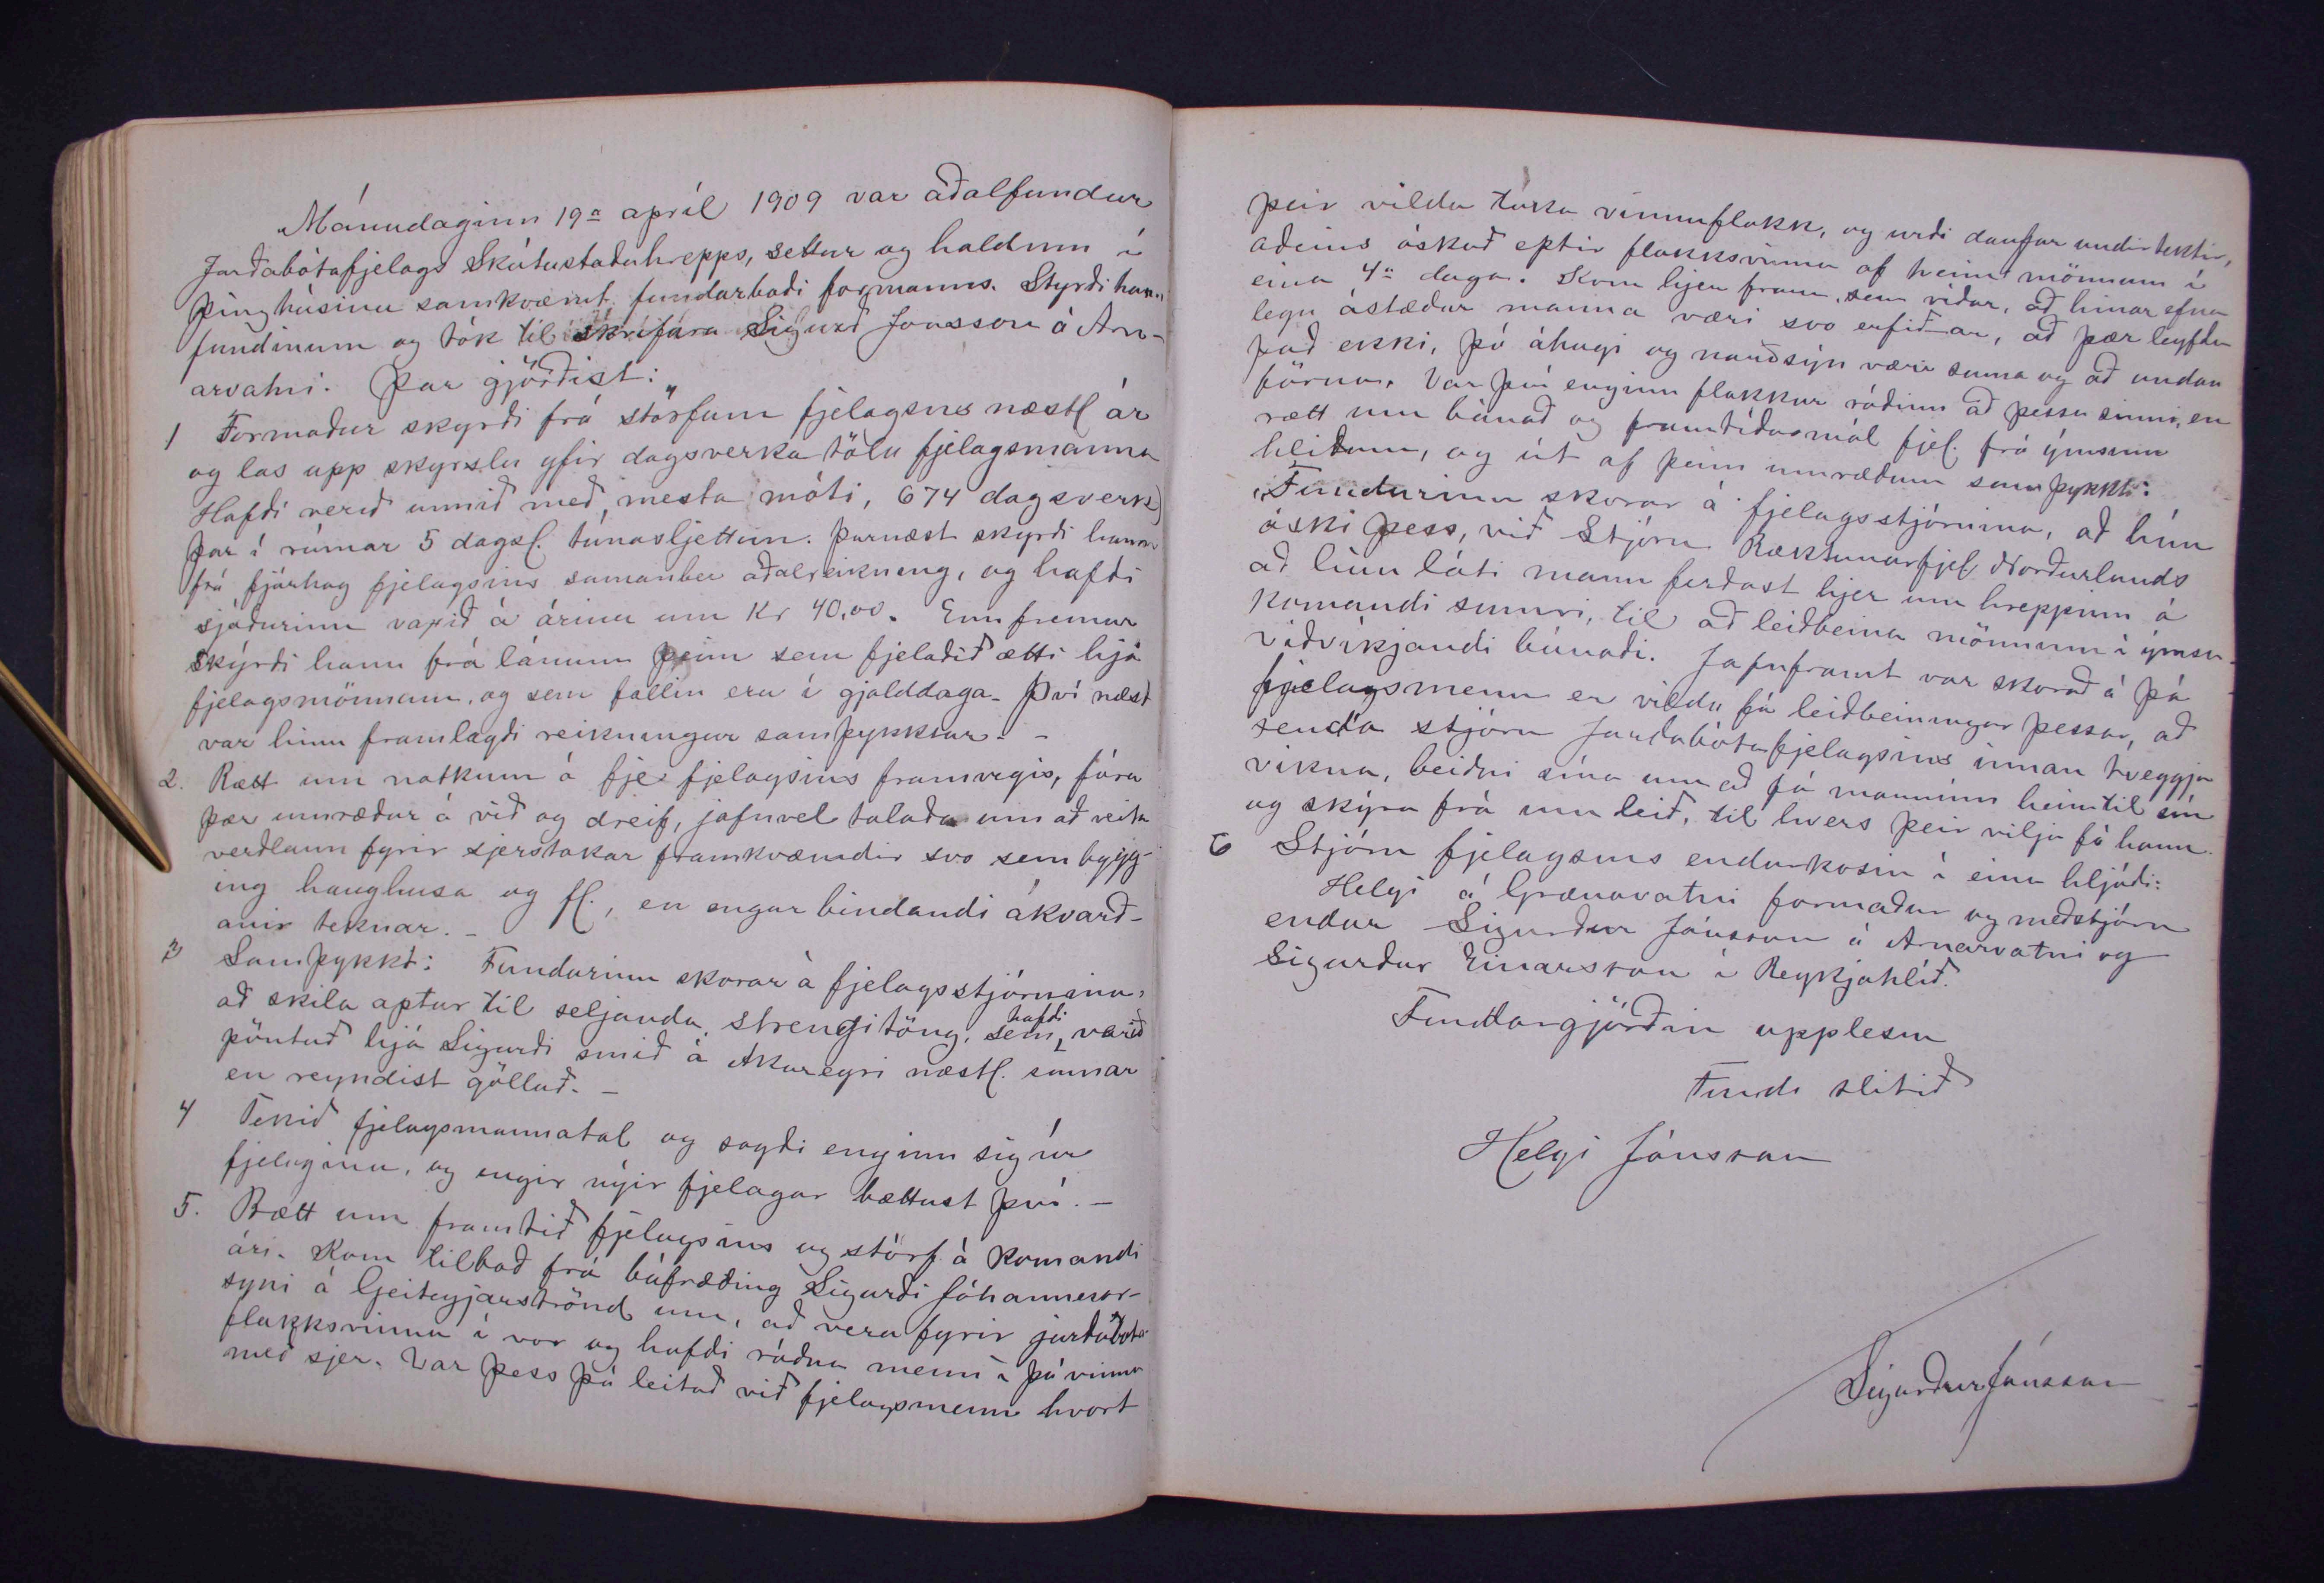 Mánudaginn 19a apríl 1909 var aðalfundur
Jarðabótafjelags Skútustaðahrepps, settur og haldinn í
þinghúsinu samkvæmt fundarboði formanns. Styrði hann
fundinum og tók til skrifara Sigurð Jónsson á Arn-
arvatni. Þar gjörðist:
1 Formaður skyrði frá störfum fjelagsins næstl ár
og las upp skyrslu yfir dagsverkatölu fjelagsmanna
Hafði verið unnið með mesta móti, 674 dagsverk)
þar í rúmar 5 dagsl. túnasljettun. Þarnæst skyrði hann
frá fjárhag fjelagsins samanber aðalreikning, og hafði
sjóðurinn vaxið á árinu um Kr 40,00. Ennfremur
skýrði hann frá lánum þeim sem fjelaðið ætti hjá
fjelagsmönnum, og sem fallin eru í gjalddaga. Því næst
var hinn framlagði reikningur samþykktur. -
2. Rætt um notkun á fje fjelagsins framvegis, fóru
þær umræður á við og dreif, jafnvel talað um að veita
verðlaun fyrir sjerstakar framkvæmdir svo sem bygg-
ing haughusa og fl., en engar bindandi ákvarð-
anir teknar. -
3 Samþykkt: Fundurinn skorar á fjelagsstjórnina,
að skila aptur til seljanda, strengitöng, sem hafði verið
pöntuð hjá Sigurði smið á Akureyri næstl. sumar
en reyndist gölluð. -
4 Tekið fjelagsmannatal og sagði enginn sig úr
fjelaginu, og engir nýir fjelagar bættust því. -
5. Rætt um framtið fjelagsins og störf á komandi
ári. Kom tilboð frá búfræðing Sigurði Jóhannesar-
syni á Geiteyjarströnd um, að vera fyrir jarðabóta
flokksvinnu í vor og hafði ráðna menn í þá vinnu
með sjer. Var þess þá leitað við fjelagsmenn hvort
þeir vildu taka vinnuflokk, og urði daufar undirtektir,
aðeins óskað eptir flokksvinnu af heim mönnum í
eina 4a daga. Kom hjer fram, sem víðar, að hinar efna
legu ástæður manna væri svo erfiðar, að þær leyfðu
það ekki, þó áhugi og nauðsýn væri sama og að undan
förnu. Var því enginn flokkur ráðinn að þessu sinni, en
rætt um búnað og framtíðarmál fjel. frá ýmsum
hliðum, og út af þeim umræðum samþykkt:
"Fundurinn skorar á fjelagsstjórnina, að hún
óski þess, við Stjórn Ræktunarfjel Norðurlands
að hún láti mann ferðast hjer um hreppinn á
komandi sumri, til að leiðbeina mönnum í ýmsu
viðvíkjandi búnaði. Jafnframt var skorað á þá
fjelagsmenn er vildu fá leiðbeiningar þessar, að
senda stjórn Jarðabótafjelagsins innan tveggja
vikna, beiðni sína um að fá manninn heim til sín
og skýra frá um leið, til hvers þeir vilja fá hann.
6 Stjórn fjelagsins endurkosin í einu hljóði:
Helgi á Grænavatni formaður og meðstjórn
endur Sigurður Jónsson á Arnarvatni og
Sigurður Einarsson í Reykjahlíð.
Fundargjörðin upplesin
Fundi slitið
Helgi Jónsson
Sigurður Jónsson